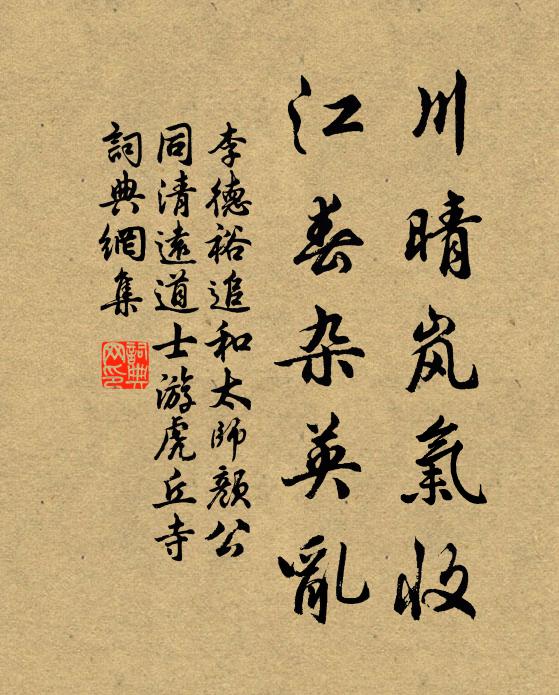 川晴岚氣收
江春杂英亂
李德裕追和太師顏公
同清遠道士游虎丘寺
詞典網集
詞典
网印